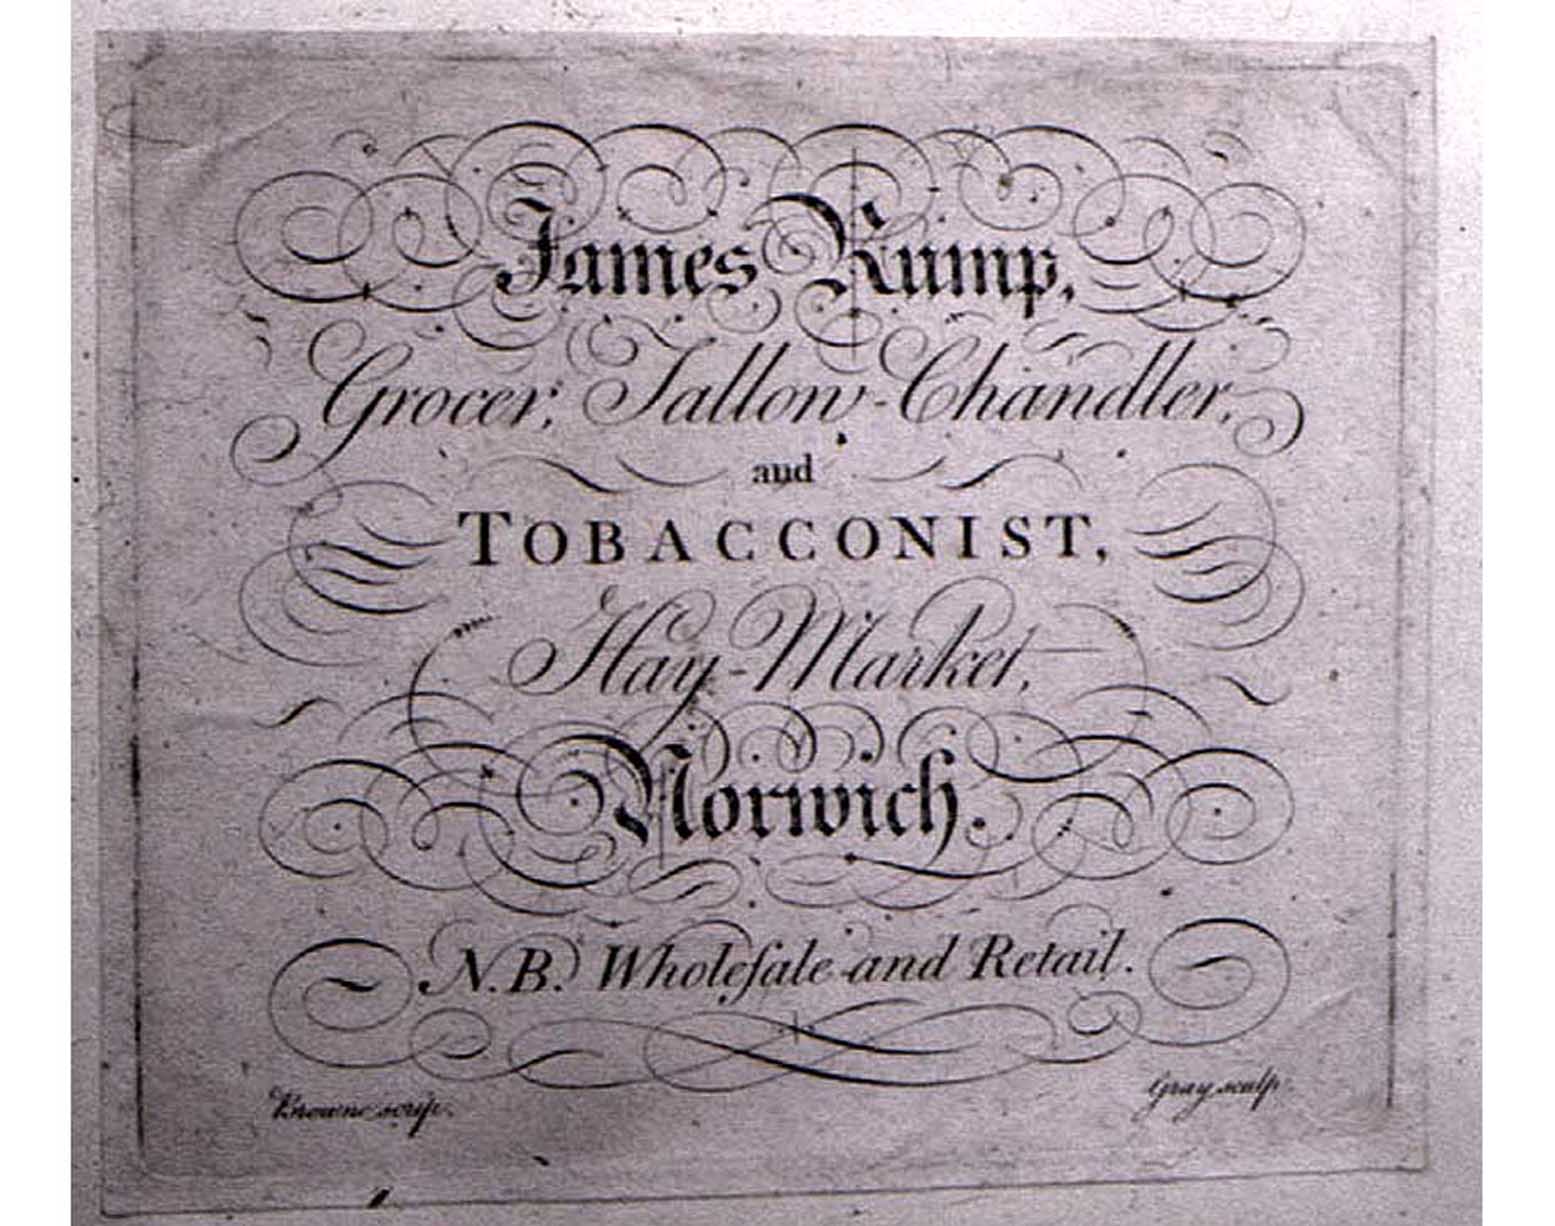 James Rump,
Grocer, Tallow-Chandler,
and
TOBACCONIST,
Hay-Market,
Norwich.
N.B. Wholeſale and Retail.
Browne scrip. Gray sculp.